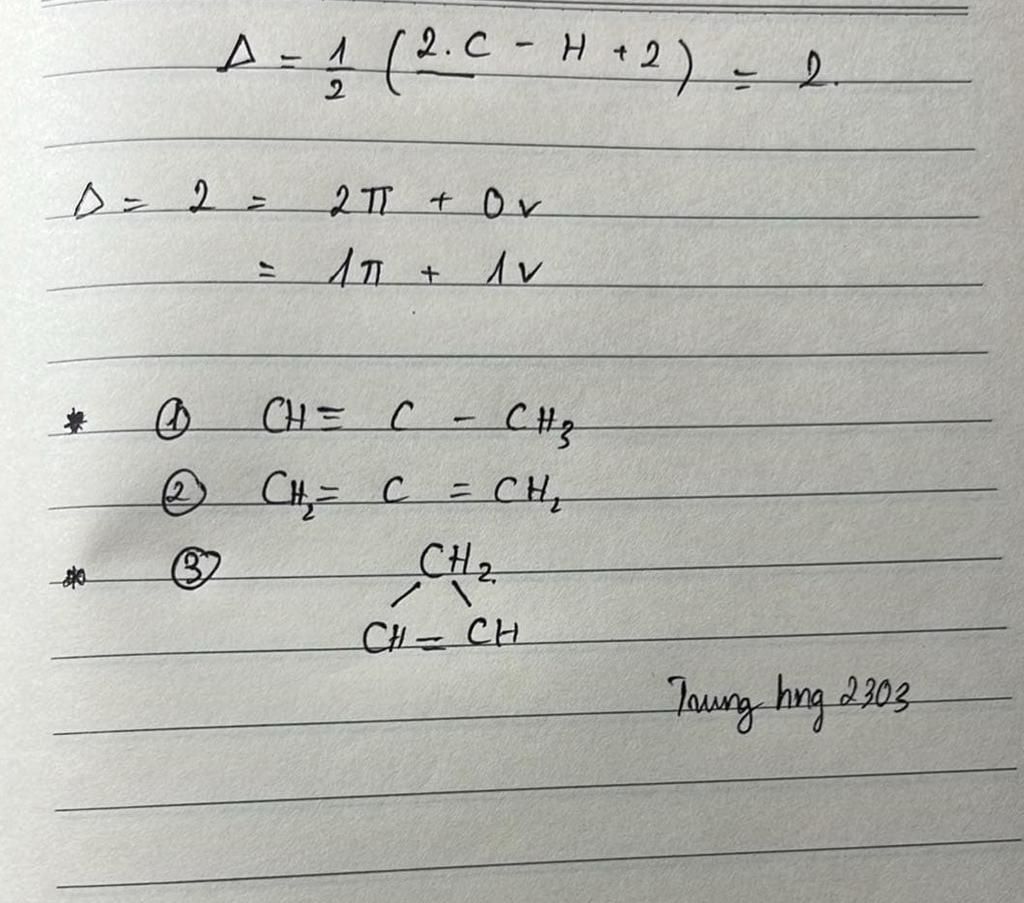 Δ = 1/2 (2.C - H + 2) = 2.
Δ = 2 = 2π + 0v
= 1π + 1v
* ① CH ≡ C - CH₃
② CH₂ = C = CH₂
* ③ CH₂
CH = CH
Trung hng 2303